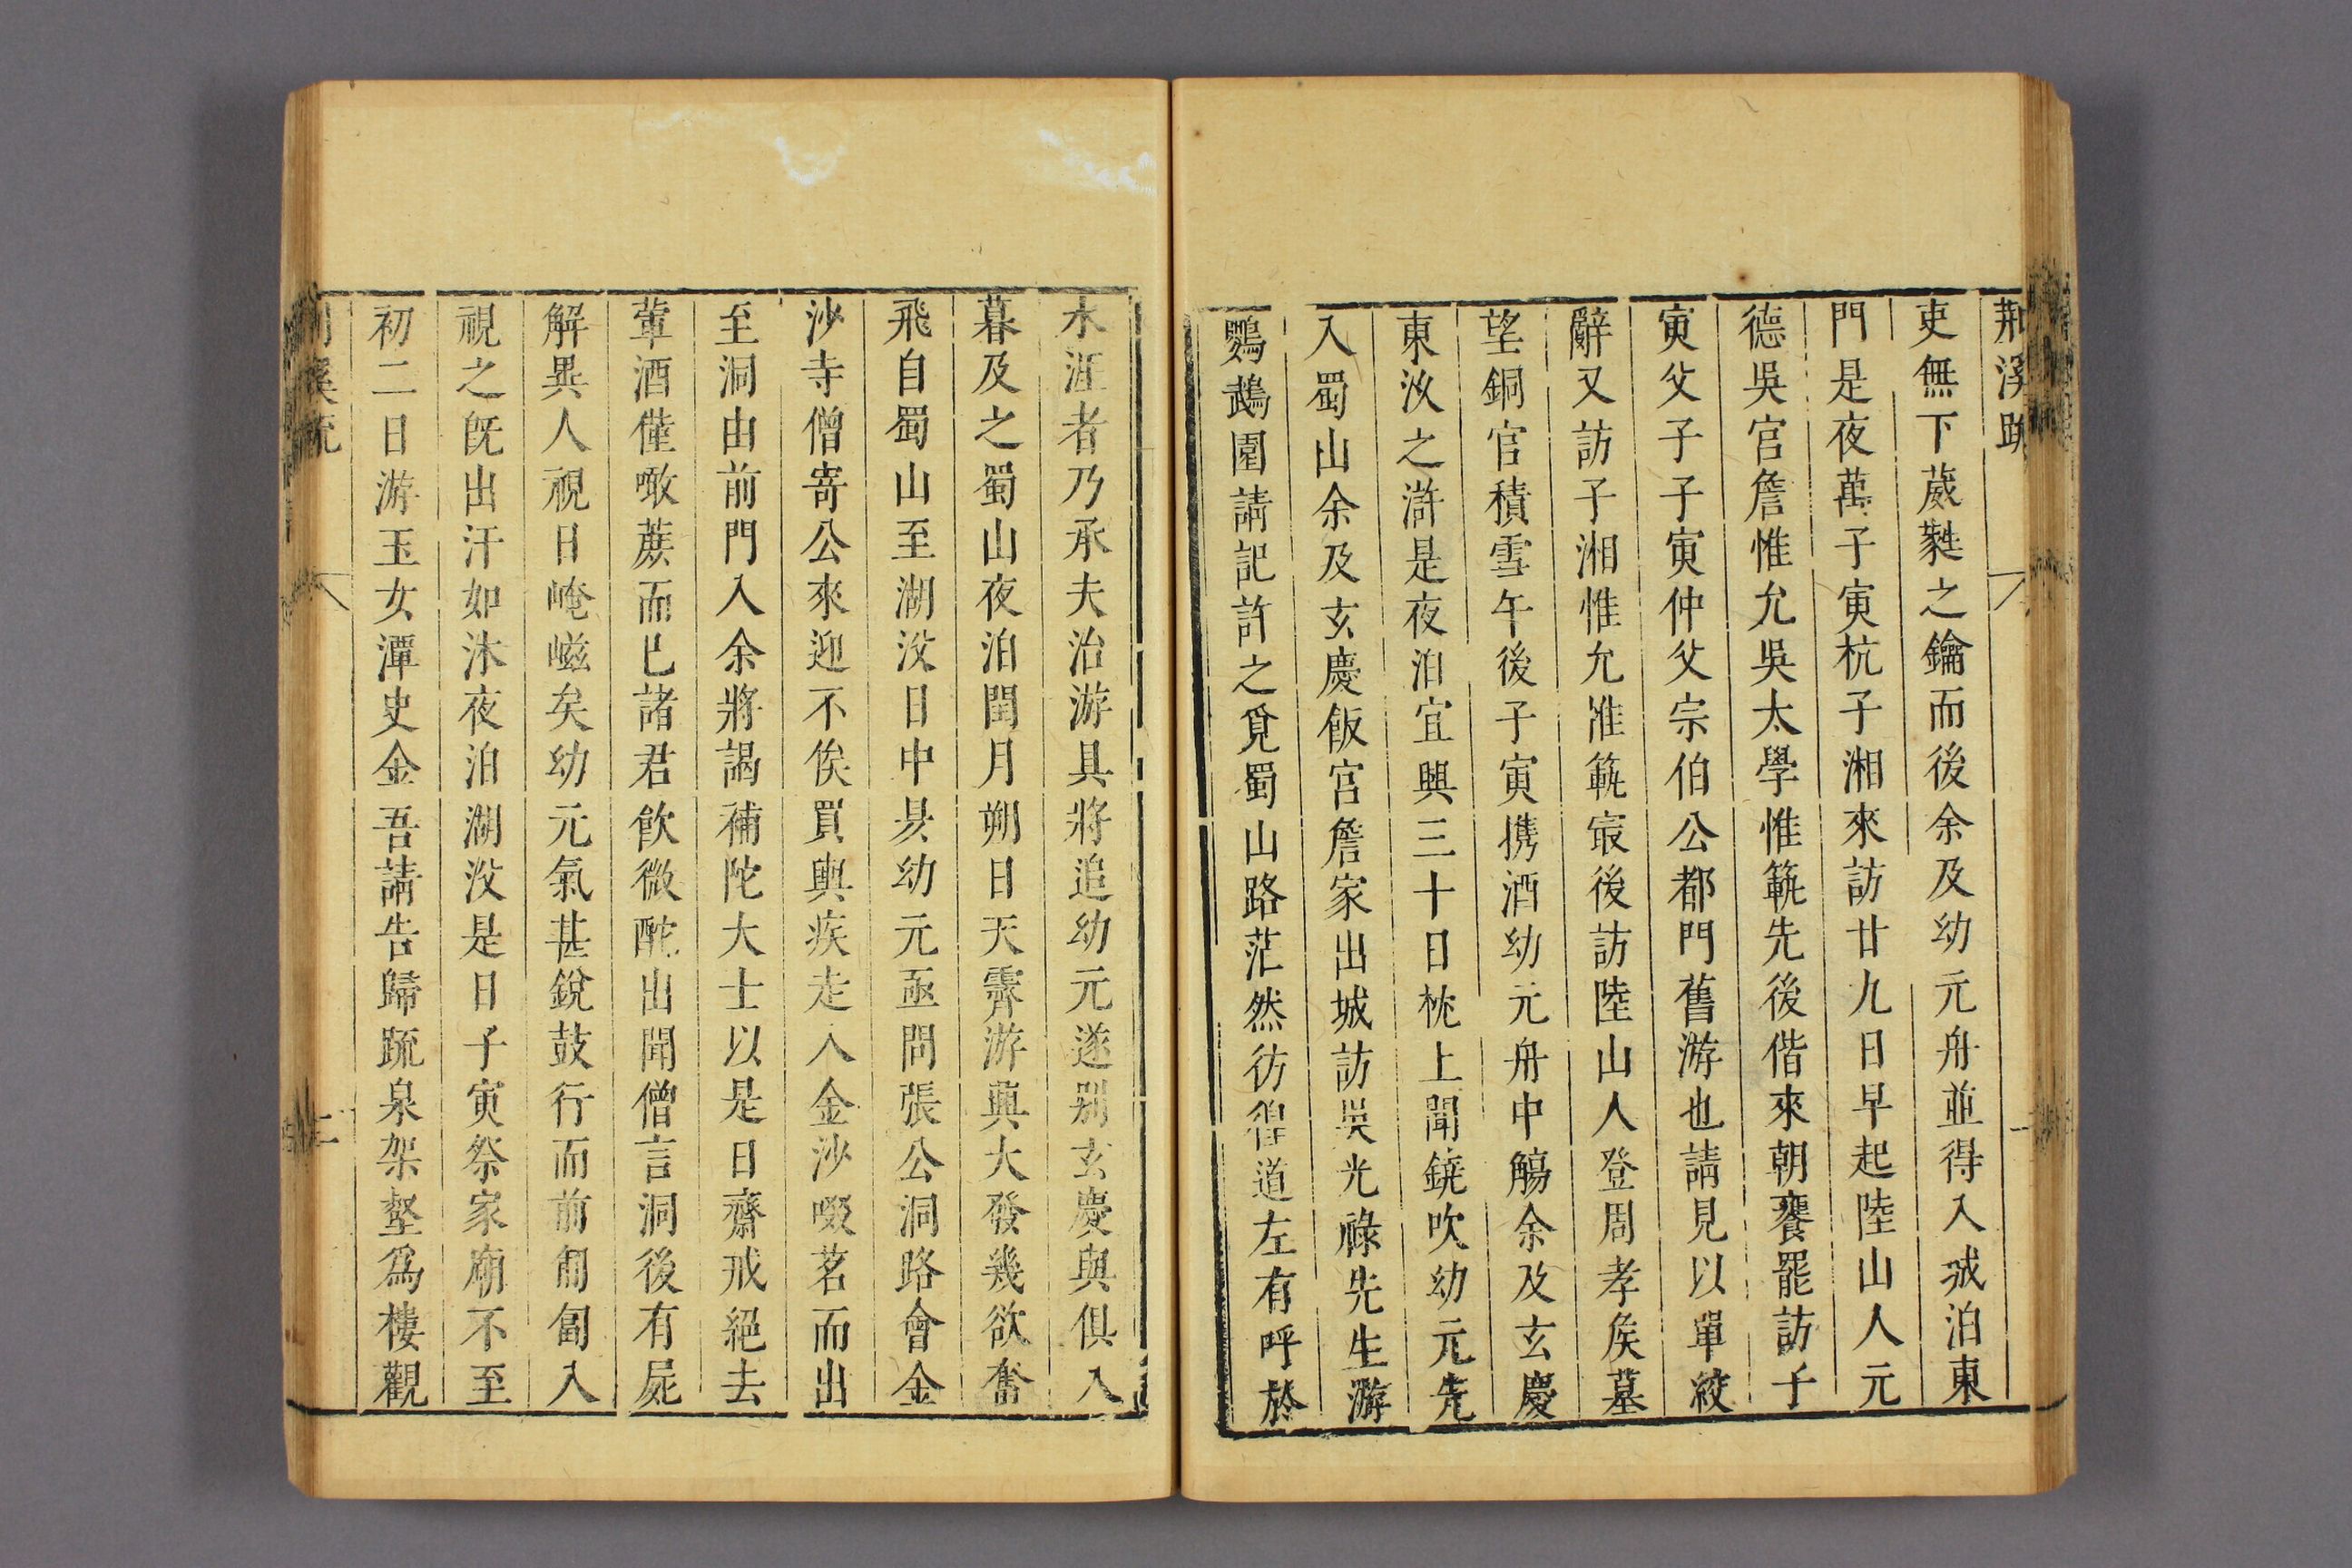 荆溪䟽
吏無下葳蕤之鑰而後余及幼元舟並得入戒泊東
門是夜萬子寅杭子湘來訪廿九日早起陸山人元
德吳官詹惟允吳太學惟範先後偕來朝饔罷訪子
寅父子子寅仲父宗伯公都門舊游也請見以單絞
辭又訪子湘惟允准範㝡後訪陸山人登周孝矦墓
望銅官積雪午後子寅携酒幼元舟中觴余及玄慶
東汝之滸是夜泊宜興三十日枕上聞鐃吹幼元先
入蜀山余及玄慶飯宫詹家出城訪吳光祿先生游
鸚鵡園請記許之覓蜀山路茫然彷徨道左有呼於
水涯者乃承夫治游具將追幼元遂别玄慶與俱入
暮及之蜀山夜泊閏月朔日天霽游興大發幾欲奮
飛自蜀山至湖㳇日中矣幼元亟問張公洞路會金
沙寺僧寄公來迎不俟買輿疾走入金沙啜茗而出
至洞由前門入余將謁補陀大士以是日齋戒絕去
葷酒僅噉蔬而已諸君飲微酡出聞僧言洞後有屍
解異人視日崦嵫矣幼元氣甚銳鼓行而前匍匐入
視之旣出汗如沐夜泊湖㳇是日子寅祭家廟不至
初二日游玉女潭史金吾請告歸䟽泉架壑爲樓觀
荆溪䟽